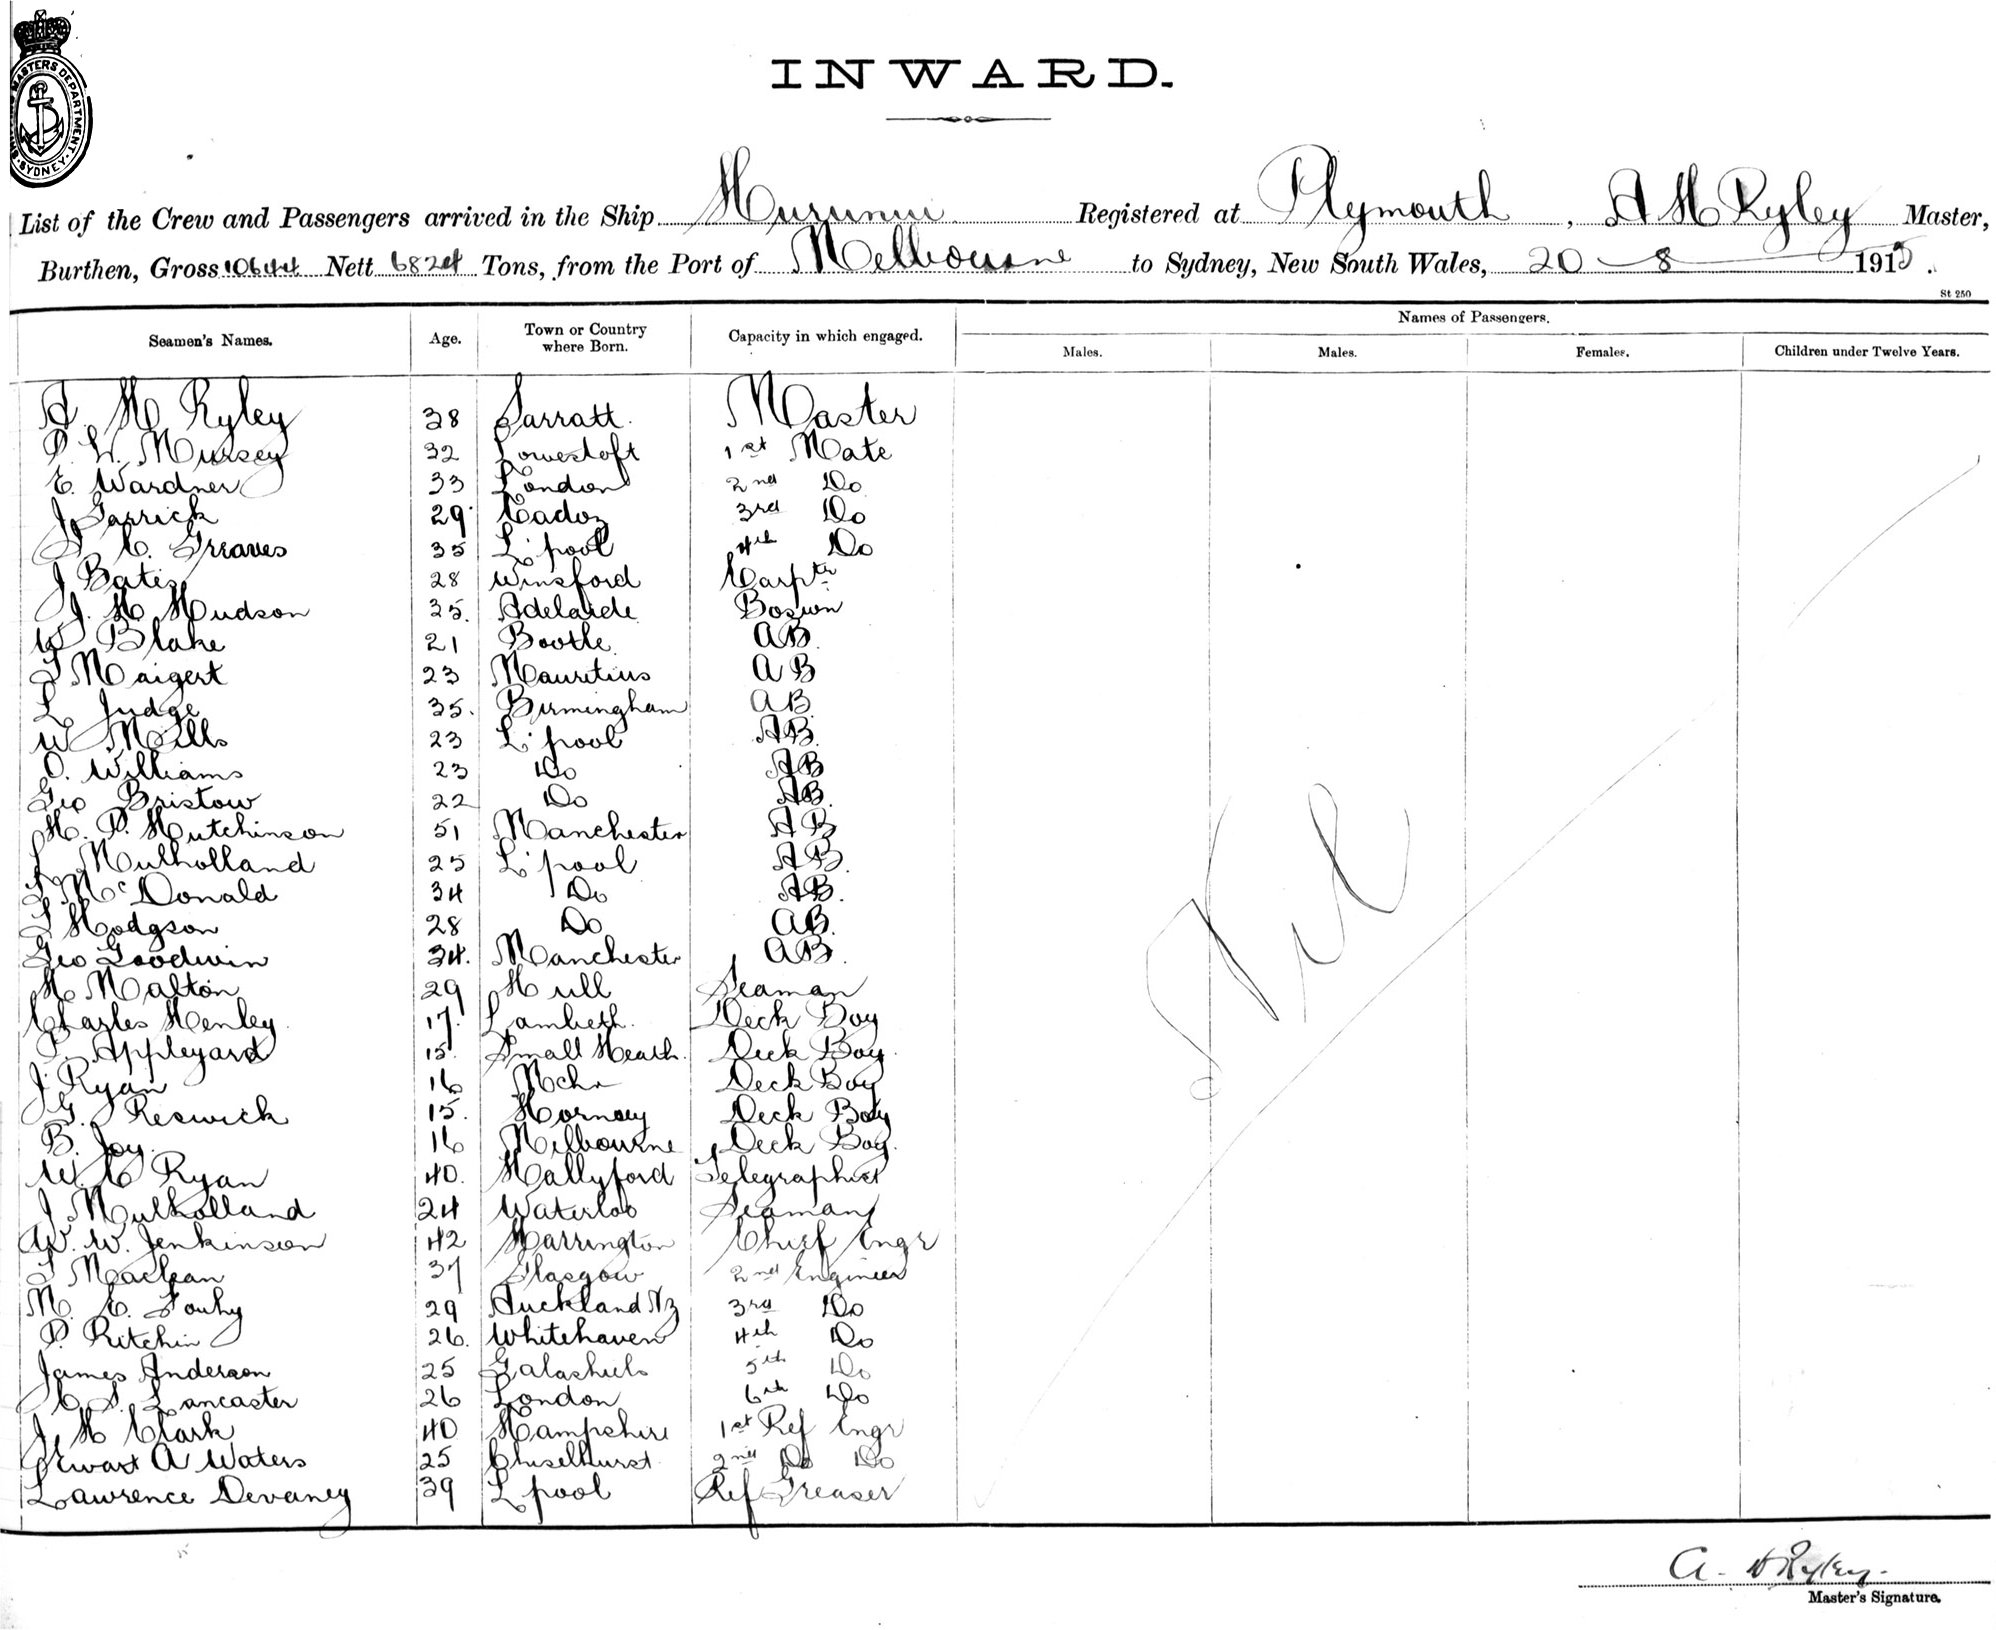 MASTERS DEPARTMENT
SYDNEY
INWARD.
List of the Crew and Passengers arrived in the Ship Hurunui Registered at Plymouth, A H Ryley Master,
Burthen, Gross 10644 Nett 6824 Tons, from the Port of Melbourne to Sydney, New South Wales, 20 - 8 191
St 250
Seamen's Names. Age. Town or Country where Born. Capacity in which engaged. Names of Passengers.
Males. Males. Females. Children under Twelve Years.
A. H Ryley 38 Sarratt. Master
P. W. Mursey 32 Lowestoft 1st Mate
E. Wardner 33 London 2nd Do
J Garrick 29 3rd Do
C. Greaves 35 L'pool 4th Do
J Bates 28 Winsford Carptr
J. H. Hudson 35. Adelaide Boswn
W Blake 21 Bootle. AB.
Maigert 23 Mauritius AB
L Judge 35. Birmingham AB
W Mills 23 L'pool AB.
O. Williams 23 Do AB
Geo Bristow 22 Do AB.
H. P. Hutchinson 51 Manchester AB
Mulholland 25 L'pool AB.
McDonald 34 Do AB.
Hodgson 28 Do AB.
Geo Goodwin 34. Manchester AB.
H. Malton 29 Hull Seaman
Charles Henley 17. Lambeth. Deck Boy
Appleyard 15. Small Heath. Deck Boy.
J. Ryan 16 Mchr Deck Boy
G. Reswick 15. Hornsey Deck Boy
B. Joy. 16 Melbourne Deck Boy.
W. C Ryan 40. Hallyford Telegraphist
J Mulholland 24 Waterloo Seaman
W. W. Jenkinson 42 Harrington Chief Engr
Maclean 37 Glasgow 2nd Engineer
M. C. Touhy 29 Auckland Nz 3rd Do
P. Ritchin 26. Whitehaven 4th Do
James Anderson 25 Galashiels 5th Do
C. S. Lancaster 26 London 6th Do
J. H Clark 40 Hampshire 1st Ref Engr
Stwart A Waters 25 Chiselhurst. 2nd Do Do
Lawrence Devaney 39 L'pool Ref Greaser
Nil
A. H Ryley.
Master's Signature.